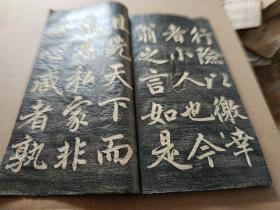 行險以徼幸
者小人也今
翁之言如是
天下而
私家非
心感者孰